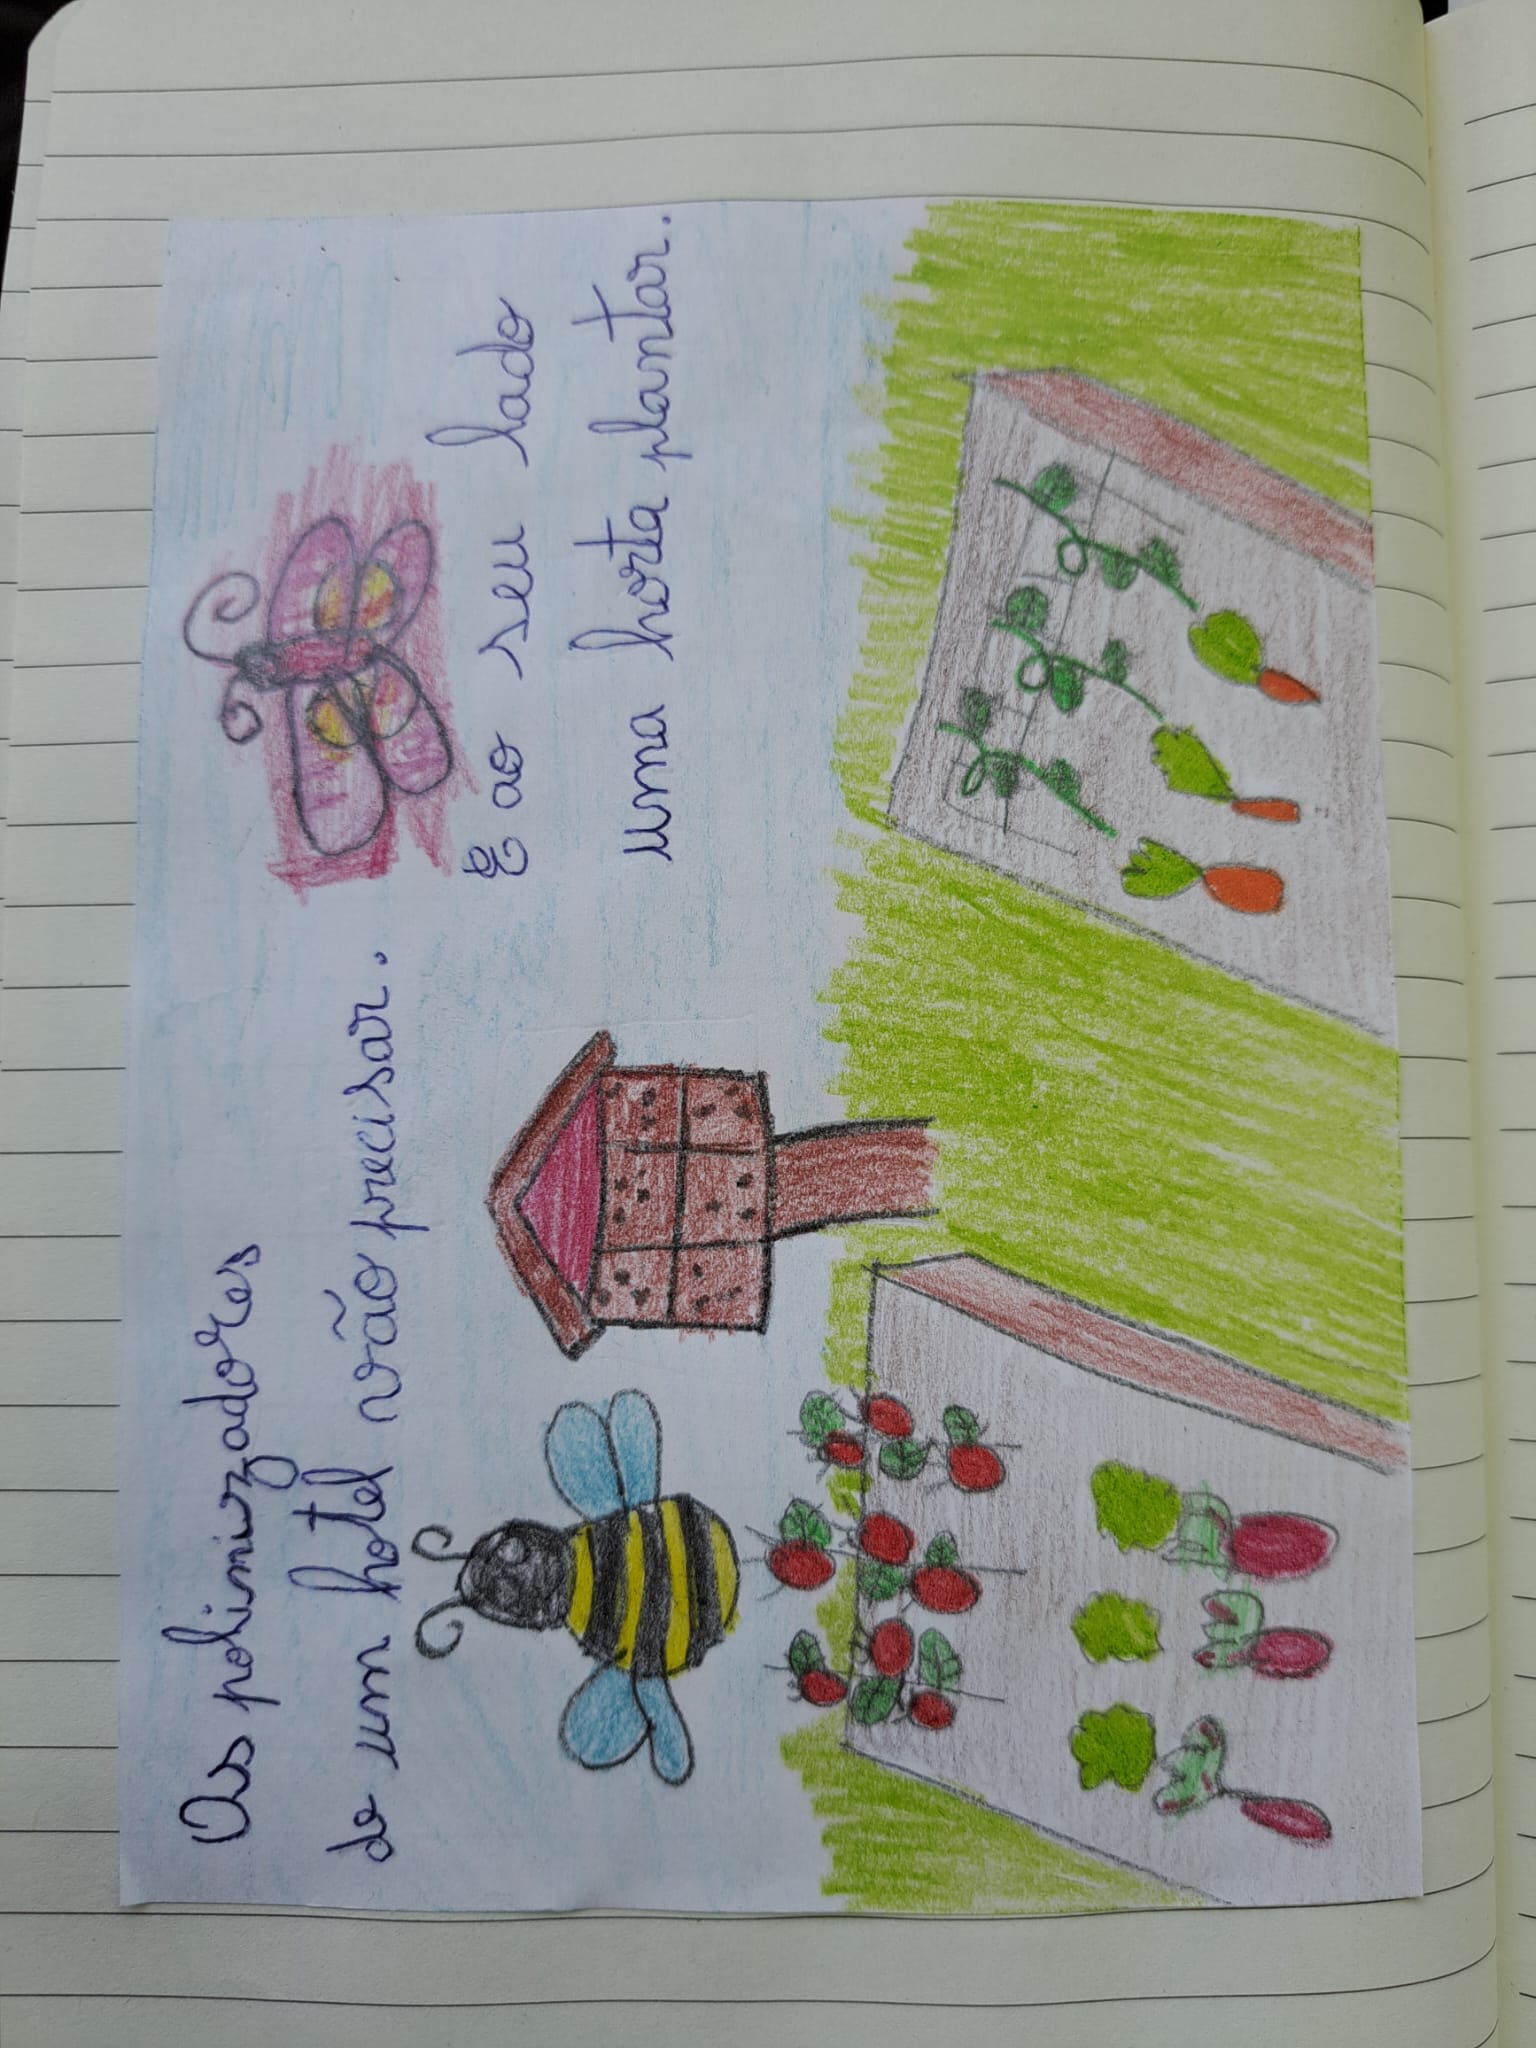 Os polinizadores
de um hotel vão precisar.
E ao seu lado
uma horta plantar.